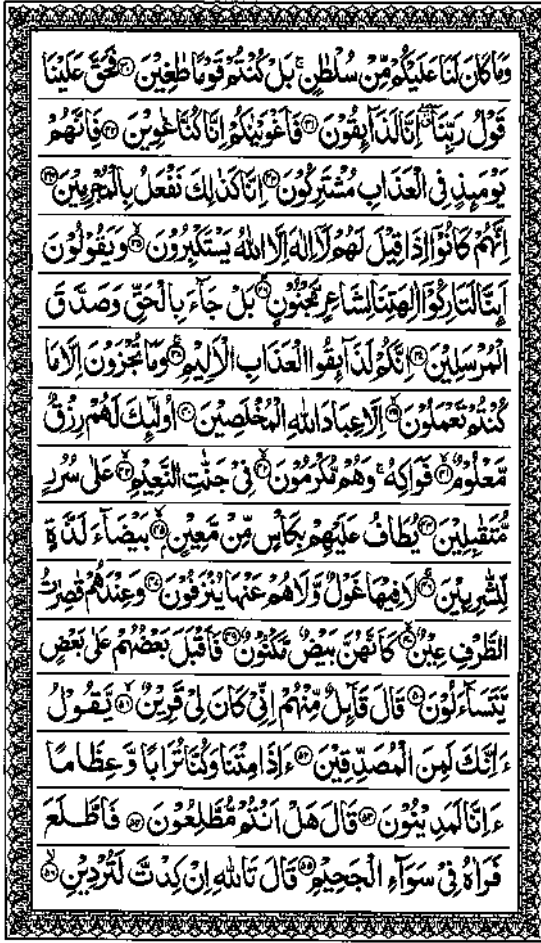 وَمَا كَانَ لَنَا عَلَيْكُمْ مِّنْ سُلْطٰنٍ ۚ بَلْ كُنْتُمْ قَوْمًا طٰغِيْنَ ﴿۳۰﴾ فَحَقَّ عَلَيْنَا
قَوْلُ رَبِّنَآ ۖ اِنَّا لَذَآئِقُوْنَ ﴿۳۱﴾ فَاَغْوَيْنٰكُمْ اِنَّا كُنَّا غٰوِيْنَ ﴿۳۲﴾ فَاِنَّهُمْ
يَوْمَئِذٍ فِى الْعَذَابِ مُشْتَرِكُوْنَ ﴿۳۳﴾ اِنَّا كَذٰلِكَ نَفْعَلُ بِالْمُجْرِمِيْنَ ﴿۳۴﴾
اِنَّهُمْ كَانُوْٓا اِذَا قِيْلَ لَهُمْ لَآ اِلٰهَ اِلَّا اللّٰهُ يَسْتَكْبِرُوْنَ ﴿۳۵﴾ وَيَقُوْلُوْنَ
اَئِنَّا لَتَارِكُوْٓا اٰلِهَتِنَا لِشَاعِرٍ مَّجْنُوْنٍ ﴿۳۶﴾ بَلْ جَآءَ بِالْحَقِّ وَصَدَّقَ
الْمُرْسَلِيْنَ ﴿۳۷﴾ اِنَّكُمْ لَذَآئِقُوا الْعَذَابِ الْاَلِيْمِ ﴿۳۸﴾ وَمَا تُجْزَوْنَ اِلَّا مَا
كُنْتُمْ تَعْمَلُوْنَ ﴿۳۹﴾ اِلَّا عِبَادَ اللّٰهِ الْمُخْلَصِيْنَ ﴿۴۰﴾ اُولٰٓئِكَ لَهُمْ رِزْقٌ
مَّعْلُوْمٌ ﴿۴۱﴾ فَوَاكِهُ ۚ وَهُمْ مُّكْرَمُوْنَ ﴿۴۲﴾ فِىْ جَنّٰتِ النَّعِيْمِ ﴿۴۳﴾ عَلٰى سُرُرٍ
مُّتَقٰبِلِيْنَ ﴿۴۴﴾ يُطَافُ عَلَيْهِمْ بِكَاْسٍ مِّنْ مَّعِيْنٍ ﴿۴۵﴾ بَيْضَآءَ لَذَّةٍ
لِّلشّٰرِبِيْنَ ﴿۴۶﴾ لَا فِيْهَا غَوْلٌ وَّلَا هُمْ عَنْهَا يُنْزَفُوْنَ ﴿۴۷﴾ وَعِنْدَهُمْ قٰصِرٰتُ
الطَّرْفِ عِيْنٌ ﴿۴۸﴾ كَاَنَّهُنَّ بَيْضٌ مَّكْنُوْنٌ ﴿۴۹﴾ فَاَقْبَلَ بَعْضُهُمْ عَلٰى بَعْضٍ
يَّتَسَآءَلُوْنَ ﴿۵۰﴾ قَالَ قَآئِلٌ مِّنْهُمْ اِنِّىْ كَانَ لِىْ قَرِيْنٌ ﴿۵۱﴾ يَّقُوْلُ
ءَاِنَّكَ لَمِنَ الْمُصَدِّقِيْنَ ﴿۵۲﴾ ءَاِذَا مِتْنَا وَكُنَّا تُرَابًا وَّعِظَامًا
ءَاِنَّا لَمَدِيْنُوْنَ ﴿۵۳﴾ قَالَ هَلْ اَنْتُمْ مُّطَّلِعُوْنَ ﴿۵۴﴾ فَاطَّلَعَ
فَرَاٰهُ فِىْ سَوَآءِ الْجَحِيْمِ ﴿۵۵﴾ قَالَ تَاللّٰهِ اِنْ كِدْتَّ لَتُرْدِيْنِ ﴿۵۶﴾